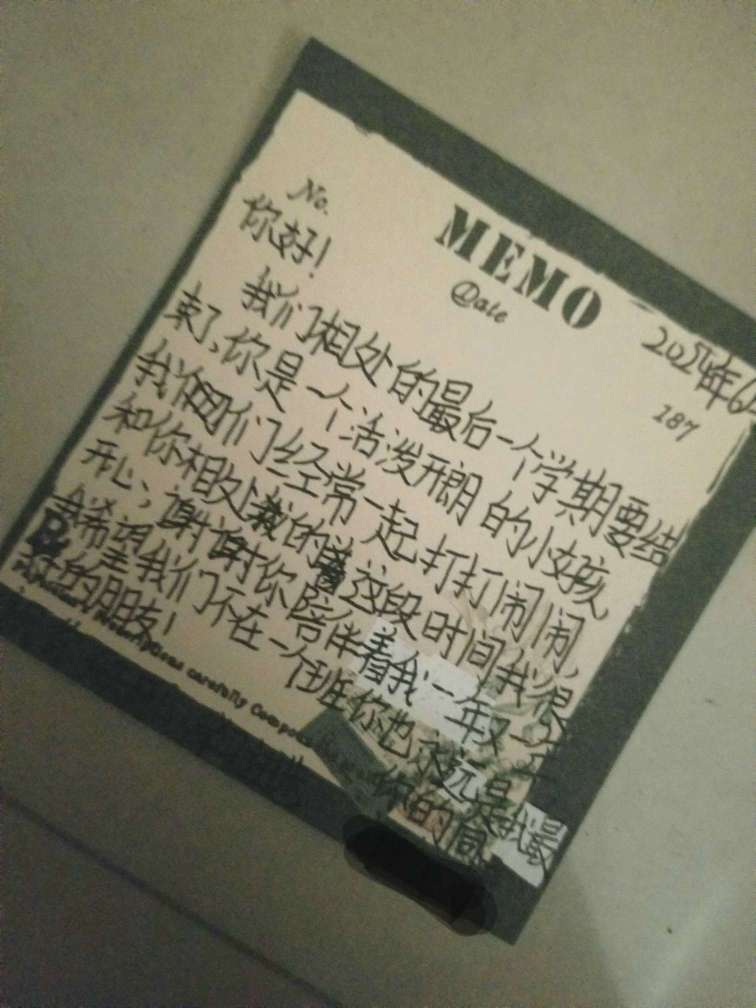 No.
MEMO
Date
2024年6
187
你好!
我们相处的最后一个学期要结
束了,你是一个活泼开朗的小女孩
我们经常一起打打闹闹,
和你相处的这段时间我很
开心,谢谢你陪伴着我一年又一年
希望我们不在一个班你也永远是我最
好的朋友!
carefully
你的同